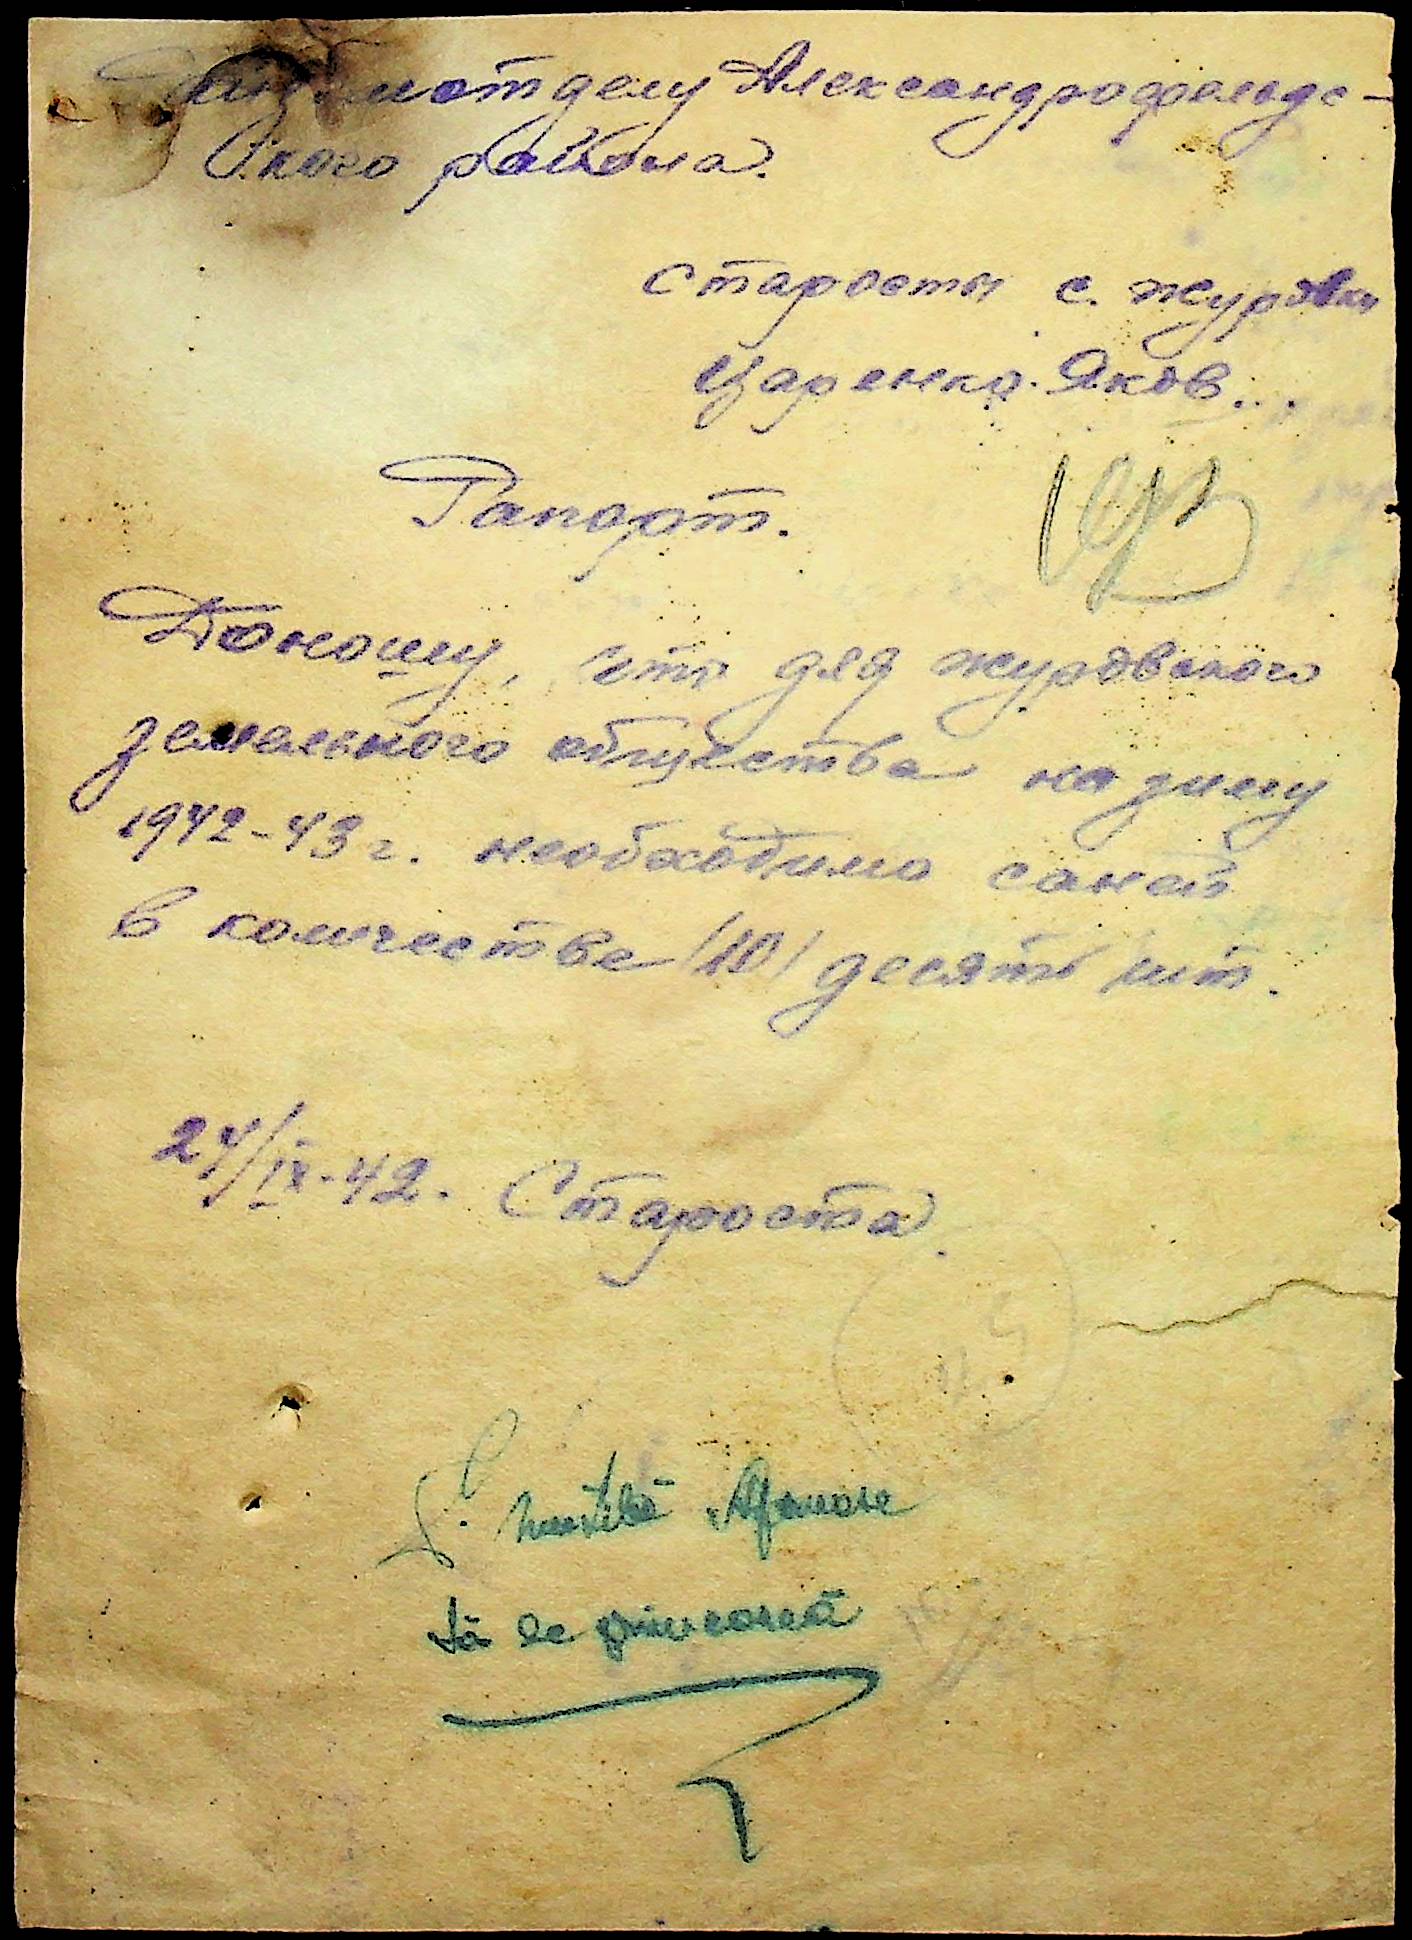 Александрофельдс-
кого района.
старосты с. Журовки
Царенко. Яков...
Рапорт.
Доношу, что для Журовского
земельного общества на зиму
1942-43 г. необходимо саней
в количестве /10/ десять шт.
24/IX-42. Староста.
să se